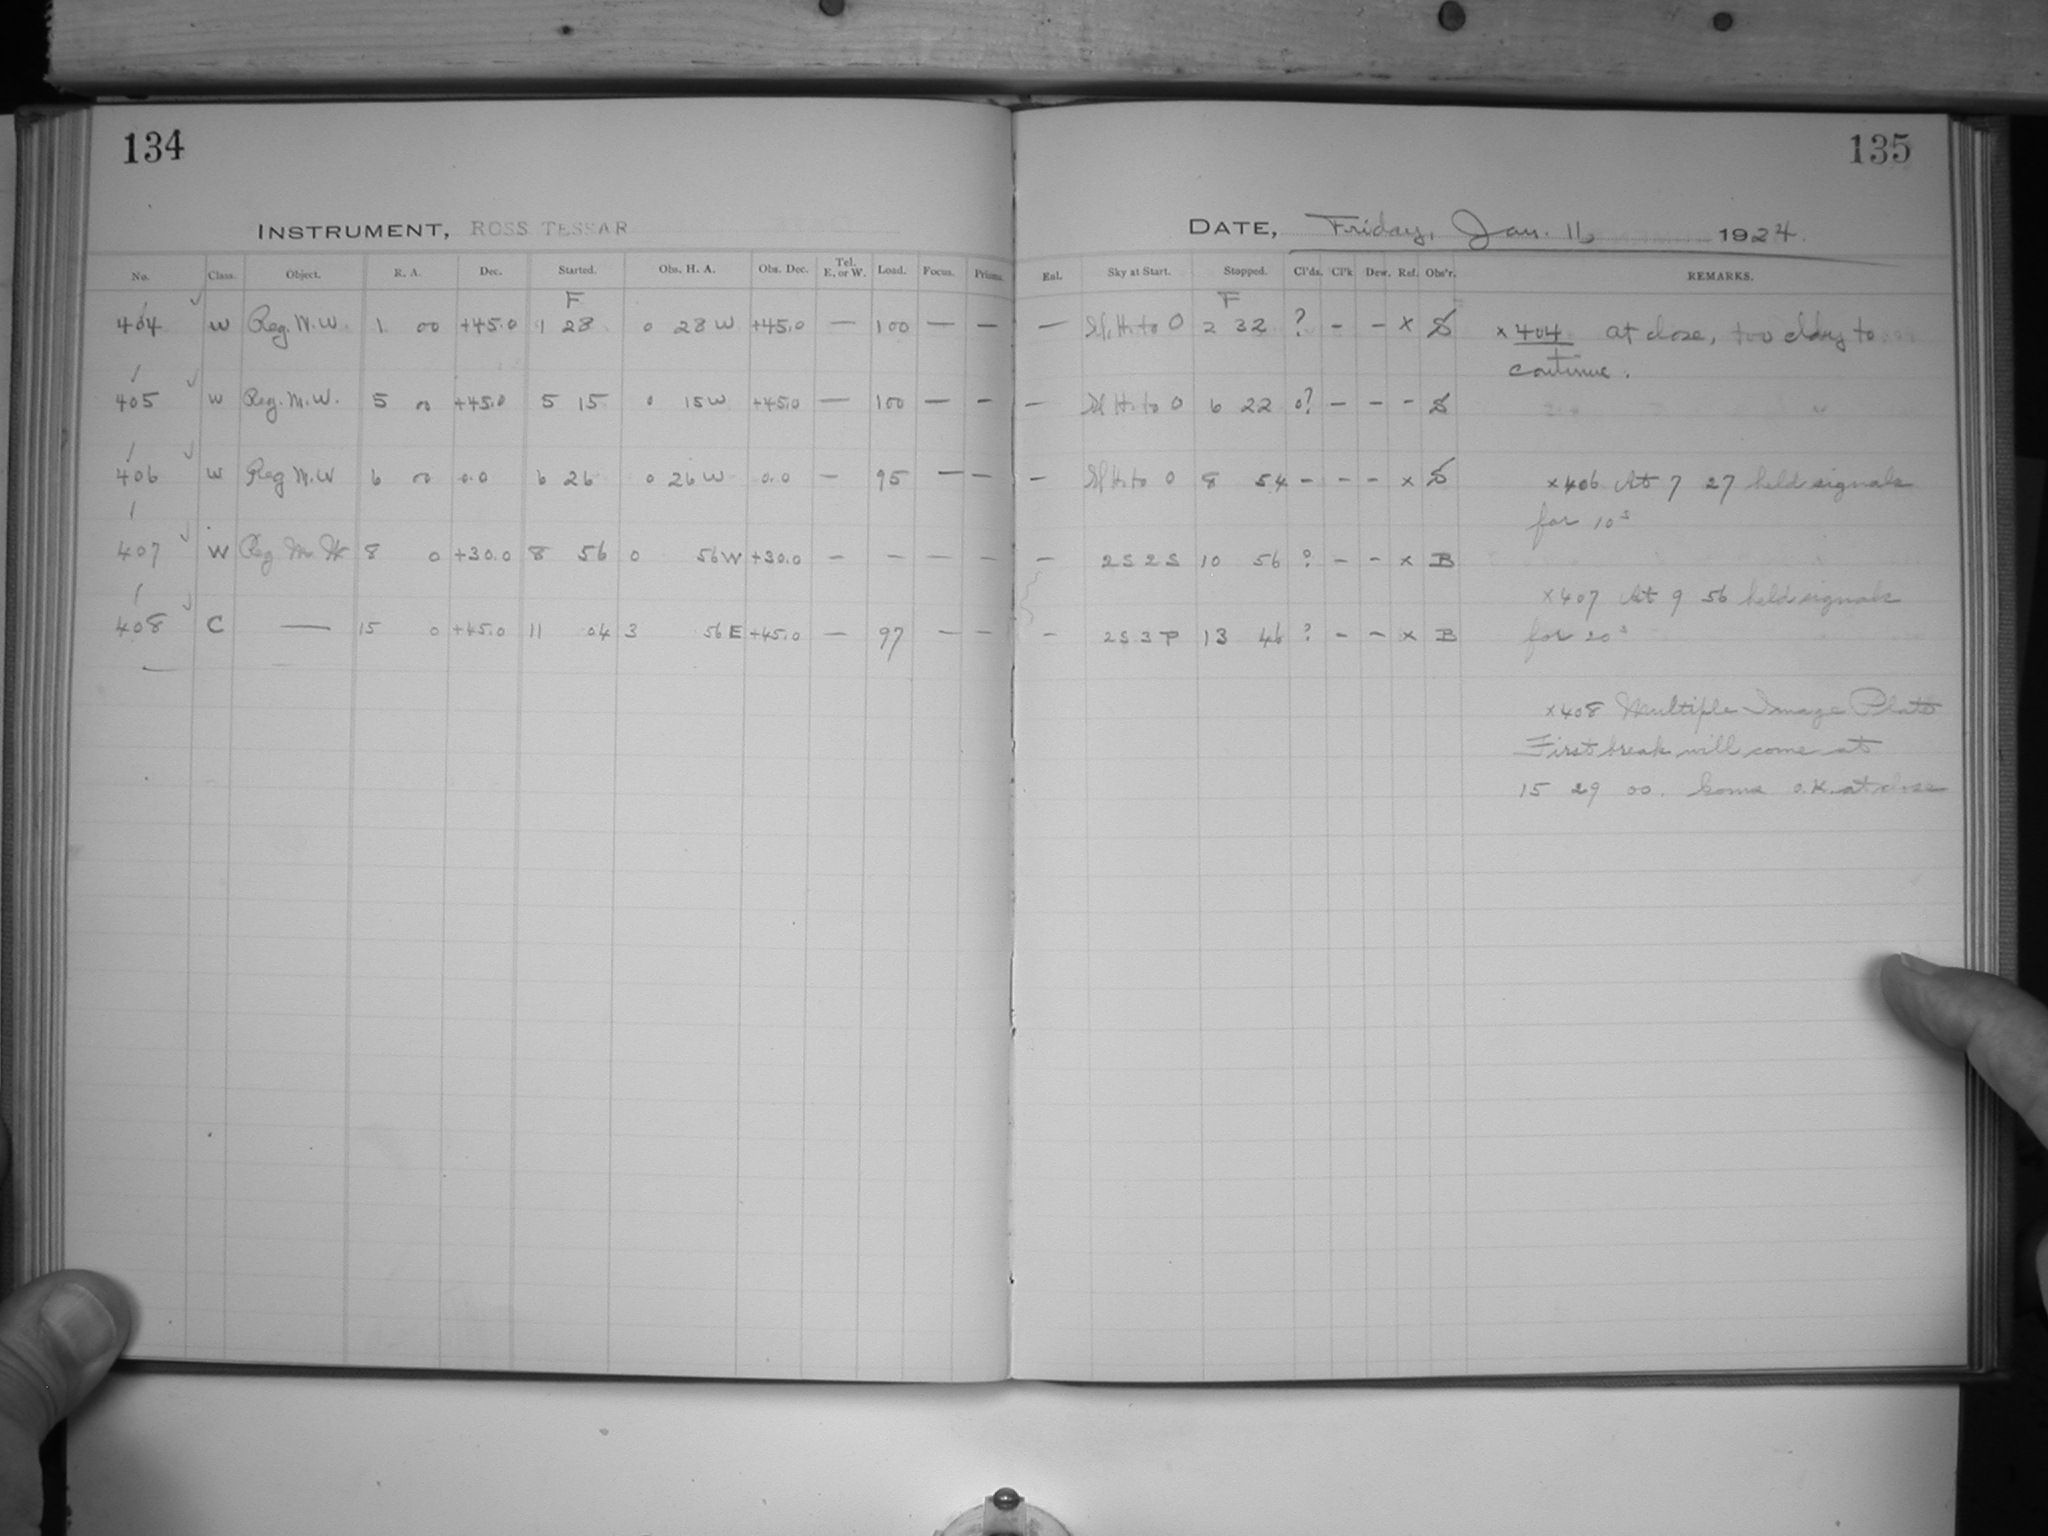 134
135
INSTRUMENT, ROSS TESSAR
DATE, Friday, Jan. 11, 1924.
No. Class. Object. R. A. Dec. Started. Obs. H. A. Obs. Dec. Tel. E. or W. Load. Focus. Prisms. Enl. Sky at Start. Stopped. Cl'ds. Cl'k Dew. Ref. Obs'r. REMARKS.
F F
404 W Reg. M.W. 1 00 +45.0 1 28 0 28 W +45.0 — 100 — — — to 0 2 32 ? - - x S x 404 at close, too cldy to
continue.
405 W Reg. M.W. 5 00 +45.0 5 15 0 15 W +45.0 — 100 — — — to 0 6 22 0? - - - S
406 W Reg M.W 6 00 0.0 6 26 0 26 W 0.0 — 95 — — — to 0 8 54 - - - x S x406 At 7 27 held signals
for 10s
407 W Reg M. W 8 0 +30.0 8 56 0 56 W +30.0 — — — — — 2S 2S 10 56 ? - - x B
x407 At 9 56 held signals
408 C — 15 0 +45.0 11 04 3 56 E +45.0 — 97 — — — 2S 3P 13 46 ? - - x B for 20s
x408 Multiple Image Plate
First break will come at
15 29 00. Goma O.K. at close